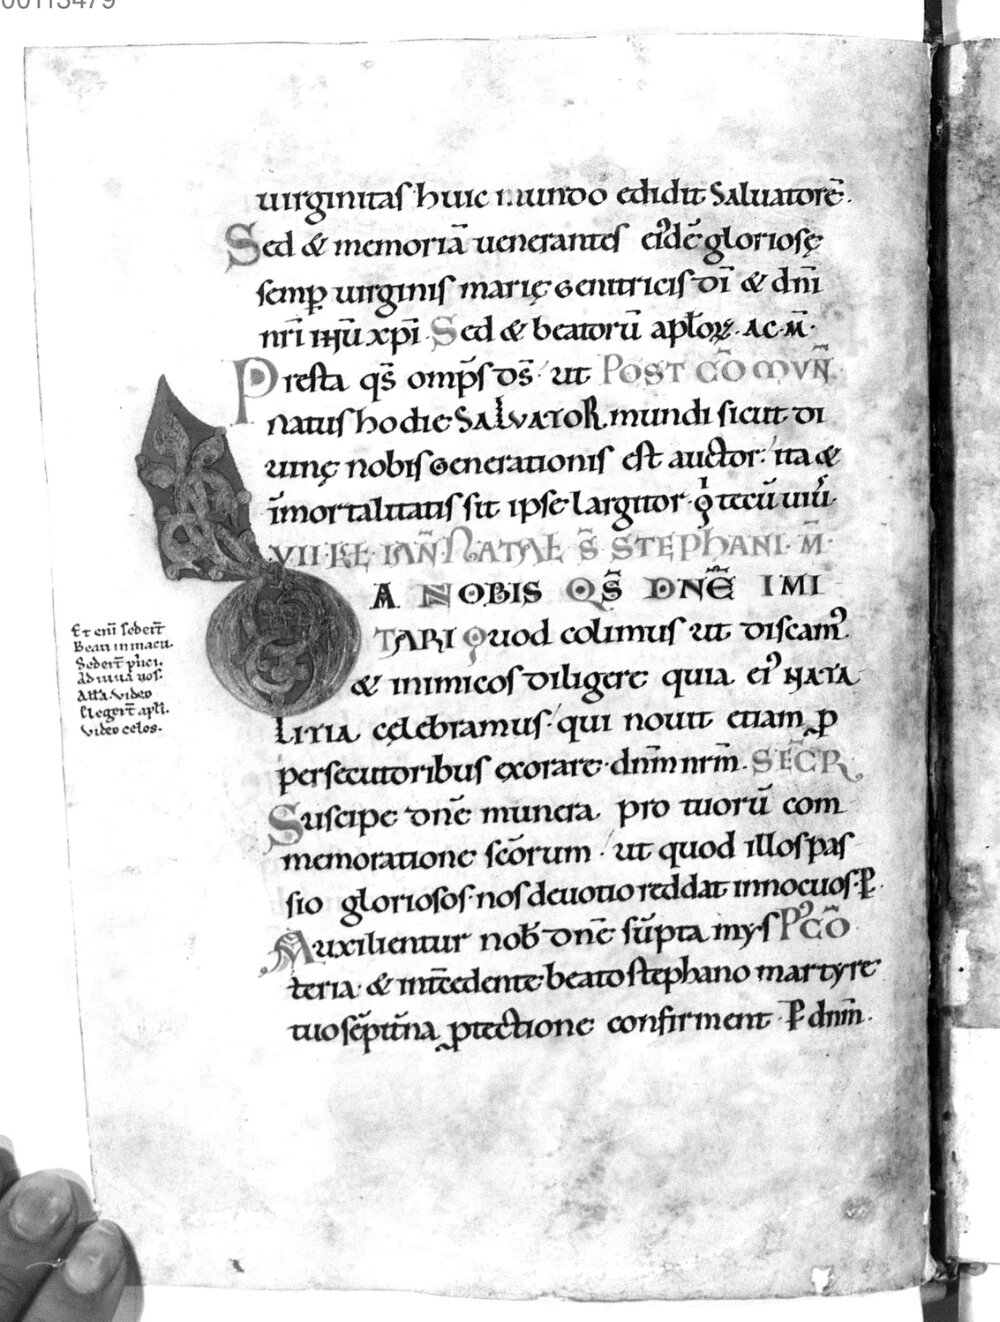 00113479
uirginitas huic mundo edidit Saluatorē.
Sed & memoriā uenerantes eiꝰdē gloriosę
semꝑ uirginis marię genitricis dī & dn̄i
nr̄i ihū xp̄i Sed & beatorū apl̄oꝝ. AC. M̄.
Presta qs̄ omp̄s ds̄ ut POST CŌMVN̄
natus hodie SALVATOR mundi sicut di
uinę nobis generationis est auctor. ita &
īmortalitatis sit ipse largitor. q̇ tecū uiū
VII. KL̄. IAN̄. NATAL̄ S̄ STEPHANI. M̄.
DA NOBIS QS̄ DNĒ IMI
TARI Quod colimus ut discamꝰ
& inimicos diligere quia eiꝰ NATA
LITIA celebramus. qui nouit etiam ꝓ
persecutoribus exorare dn̄m nrm̄. SECR̄
Suscipe dnē munera pro tuorū com
memoratione scōrum. ut quod illos pas
sio gloriosos. nos deuotio reddat innocuos. P̄.
Auxilientur nob̄ dnē sūpta mys Pꝰ CŌ
teria. & int̄cedente beato stephano martyre
tuo sēpit̄na ꝓtectione confirment. P̄ dn̄m.
Et eni sedert̄
Beati inmacu.
Sedert̄ p̄nci.
Ad iuua nos.
Alla. Video
Elegert̄ apl̄i.
Video celos.